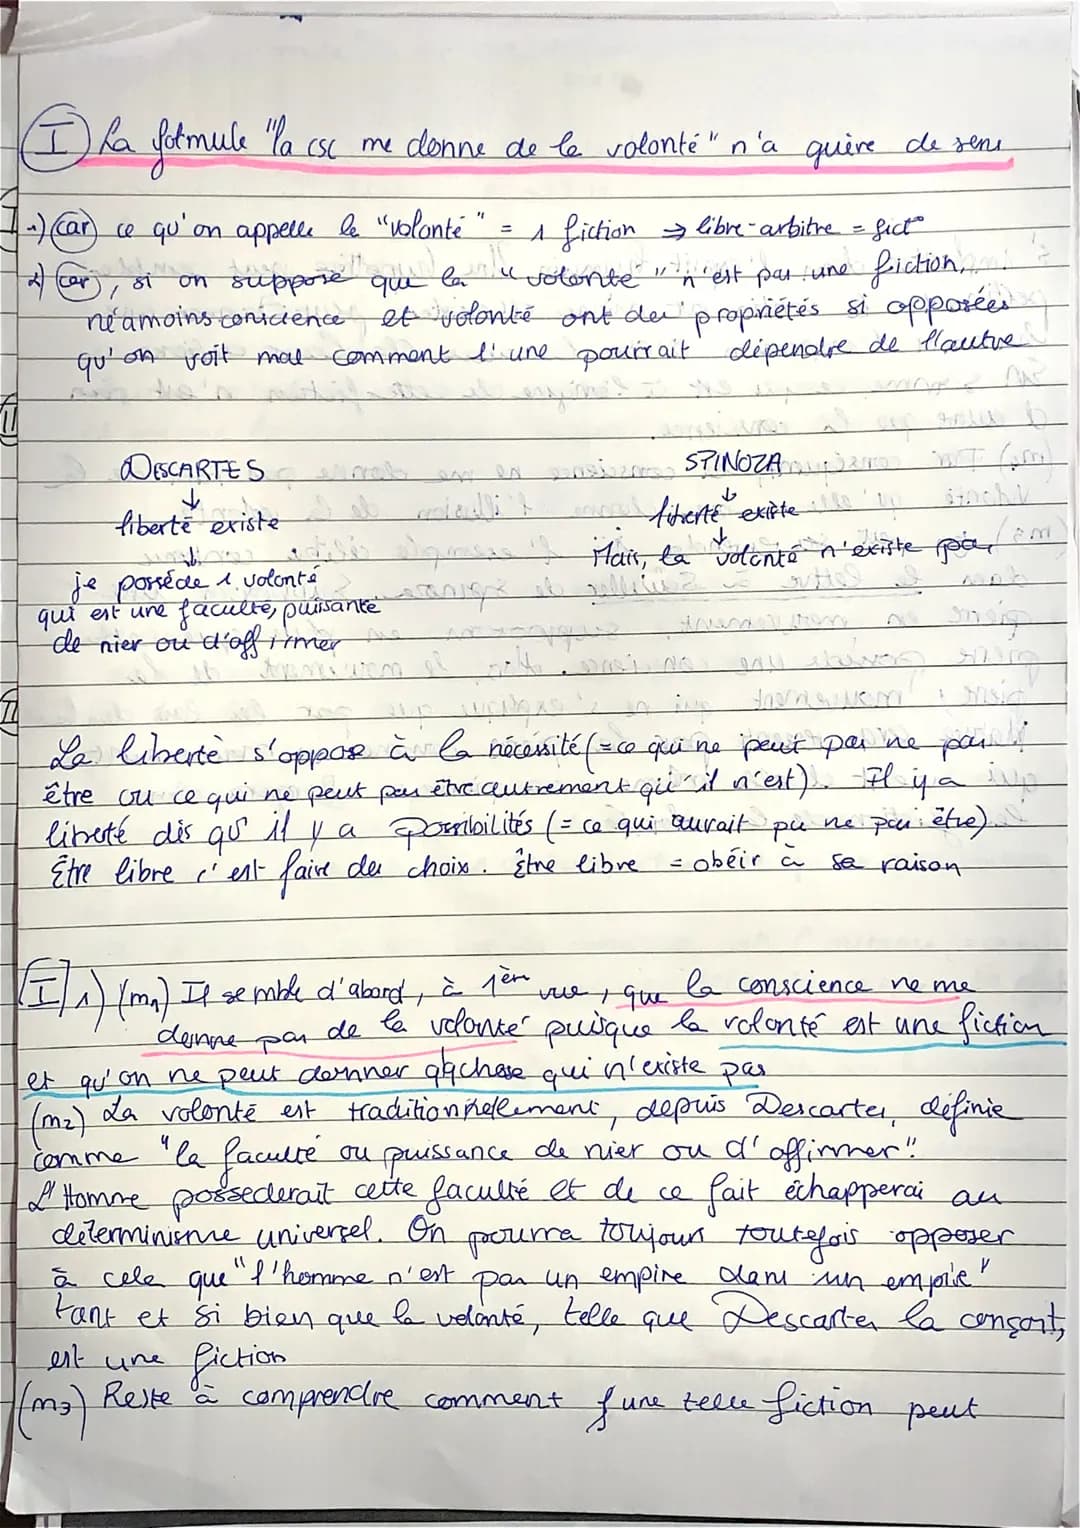 I) La formule "la csc me donne de la volonté" n'a guère de sens
1) car ce qu'on appelle la "volonté" = 1 fiction ⇒ libre-arbitre = fict°
2) car, si on suppose que la "volonté" n'est pas une fiction,
néamoins conscience et volonté ont des propriétés si opposées
qu'on voit mal comment l'une pourrait dépendre de l'autre
DESCARTES
↓
liberté existe
↓
je possède 1 volonté
qui est une faculté, puissante
de nier ou d'affirmer
SPINOZA
↓
liberté existe
↓
Mais, la volonté n'existe pas
La liberté s'oppose à la nécessité (= ce qui ne peut pas ne pas
être ou ce qui ne peut pas être autrement qu'il n'est). Il y a
liberté dès qu'il y a possibilités (= ce qui aurait pu ne pas être).
Être libre c'est faire des choix. Être libre = obéir à sa raison
I) 1) (m1) Il semble d'abord, à 1èr vue, que la conscience ne me
donne pas de la volonté puisque la volonté est une fiction
et qu'on ne peut donner qqchose qui n'existe pas
(m2) La volonté est traditionnellement, depuis Descartes, définie
comme "la faculté ou puissance de nier ou d'affirmer".
L'Homme possederait cette faculté et de ce fait échapperai au
déterminisme universel. On pourra toujours toutefois opposer
à cela que "l'homme n'est pas un empire dans un empire"
tant et si bien que la volonté, telle que Descartes la conçoit,
est une fiction
(m3) Reste à comprendre comment une telle fiction peut